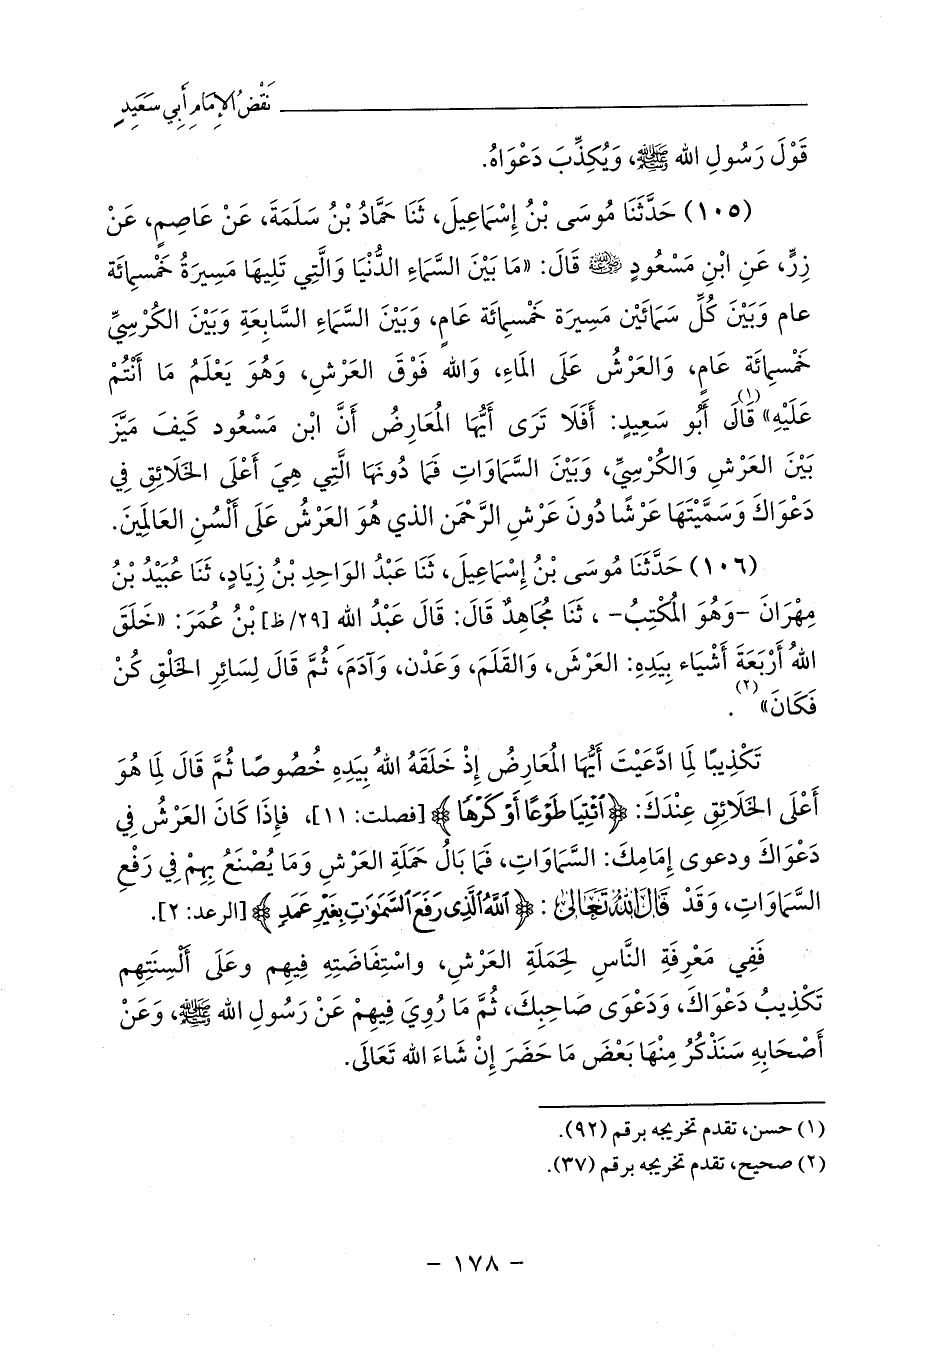 نَقْضُ الإِمَامِ أَبِي سَعِيدٍ
قَوْلَ رَسُولِ الله ﷺ، وَيُكَذِّبَ دَعْوَاهُ.
(١٠٥) حَدَّثَنَا مُوسَى بْنُ إِسْمَاعِيلَ، ثَنَا حَمَّادُ بْنُ سَلَمَةَ، عَنْ عَاصِمٍ، عَنْ
زِرٍّ، عَنِ ابْنِ مَسْعُودٍ رضي الله عنه قَالَ: «مَا بَيْنَ السَّمَاءِ الدُّنْيَا وَالَّتِي تَلِيهَا مَسِيرَةُ خَمْسِمائَة
عام وَبَيْنَ كُلِّ سَمَائَيْن مَسِيرَة خَمْسِمائَة عَامٍ، وَبَيْنَ السَّمَاءِ السَّابِعَةِ وَبَيْنَ الكُرْسِيِّ
خَمْسِمائَة عَامٍ، وَالعَرْشُ عَلَى المَاءِ، وَالله فَوْقَ العَرْشِ، وَهُوَ يَعْلَمُ مَا أَنْتُمْ
عَلَيْهِ»(١) قَالَ أَبُو سَعِيدٍ: أَفَلَا تَرَى أَيُّهَا المُعَارِضُ أَنَّ ابْن مَسْعُود كَيفَ مَيَّزَ
بَيْنَ العَرْشِ وَالكُرْسِيِّ، وَبَيْنَ السَّمَاوَاتِ فَمَا دُونَهَا الَّتِي هِيَ أَعْلَى الخَلَائِقِ فِي
دَعْوَاكَ وَسَمَّيْتَهَا عَرْشًا دُونَ عَرْشِ الرَّحْمَن الذي هُوَ العَرْشُ عَلَى أَلْسُنِ العَالَمِينَ.
(١٠٦) حَدَّثَنَا مُوسَى بْنُ إِسْمَاعِيلَ، ثَنَا عَبْدُ الوَاحِدِ بْنُ زِيَادٍ، ثَنَا عُبَيْدُ بْنُ
مِهْرَانَ -وَهُوَ المُكْتِبُ- ، ثَنَا مُجَاهِدٌ قَالَ: قَالَ عَبْدُ الله [٢٩/ظ] بْنُ عُمَرَ: «خَلَقَ
اللهُ أَرْبَعَةَ أَشْيَاء بِيَدِهِ: العَرْشَ، وَالقَلَمَ، وَعَدْن، وَآدَمَ، ثُمَّ قَالَ لِسَائِرِ الخَلْقِ كُنْ
فَكَانَ»(٢).
تَكْذِيبًا لِمَا ادَّعَيْتَ أَيُّهَا المُعَارِضُ إِذْ خَلَقَهُ اللهُ بِيَدِهِ خُصُوصًا ثُمَّ قَالَ لِمَا هُوَ
أَعْلَى الخَلَائِقِ عِنْدَكَ: ﴿ٱئْتِيَا طَوْعًا أَوْ كَرْهًا﴾ [فصلت: ١١]، فإِذَا كَانَ العَرْشُ فِي
دَعْوَاكَ ودعوى إِمَامِكَ: السَّمَاوَاتِ، فَمَا بَالُ حَمَلَةِ العَرْشِ وَمَا يُصْنَعُ بِهِمْ فِي رَفْعِ
السَّمَاوَاتِ، وَقَدْ قَالَ اللهُ تَعَالَىٰ: ﴿ٱللَّهُ ٱلَّذِى رَفَعَ ٱلسَّمَٰوَٰتِ بِغَيْرِ عَمَدٍ﴾ [الرعد: ٢].
فَفِي مَعْرِفَةِ النَّاسِ لِحَمَلَةِ العَرْشِ، واسْتِفَاضَتِهِ فِيهِم وعَلَى أَلْسِنَتِهِم
تَكْذِيبُ دَعْوَاكَ، وَدَعْوَى صَاحِبِكَ، ثُمَّ مَا رُوِيَ فِيهِمْ عَنْ رَسُولِ الله ﷺ، وَعَنْ
أَصْحَابِهِ سَنَذْكُرُ مِنْهَا بَعْضَ مَا حَضَرَ إِنْ شَاءَ الله تَعَالَى.
(١) حسن، تقدم تخريجه برقم (٩٢).
(٢) صحيح، تقدم تخريجه برقم (٣٧).
- ١٧٨ -